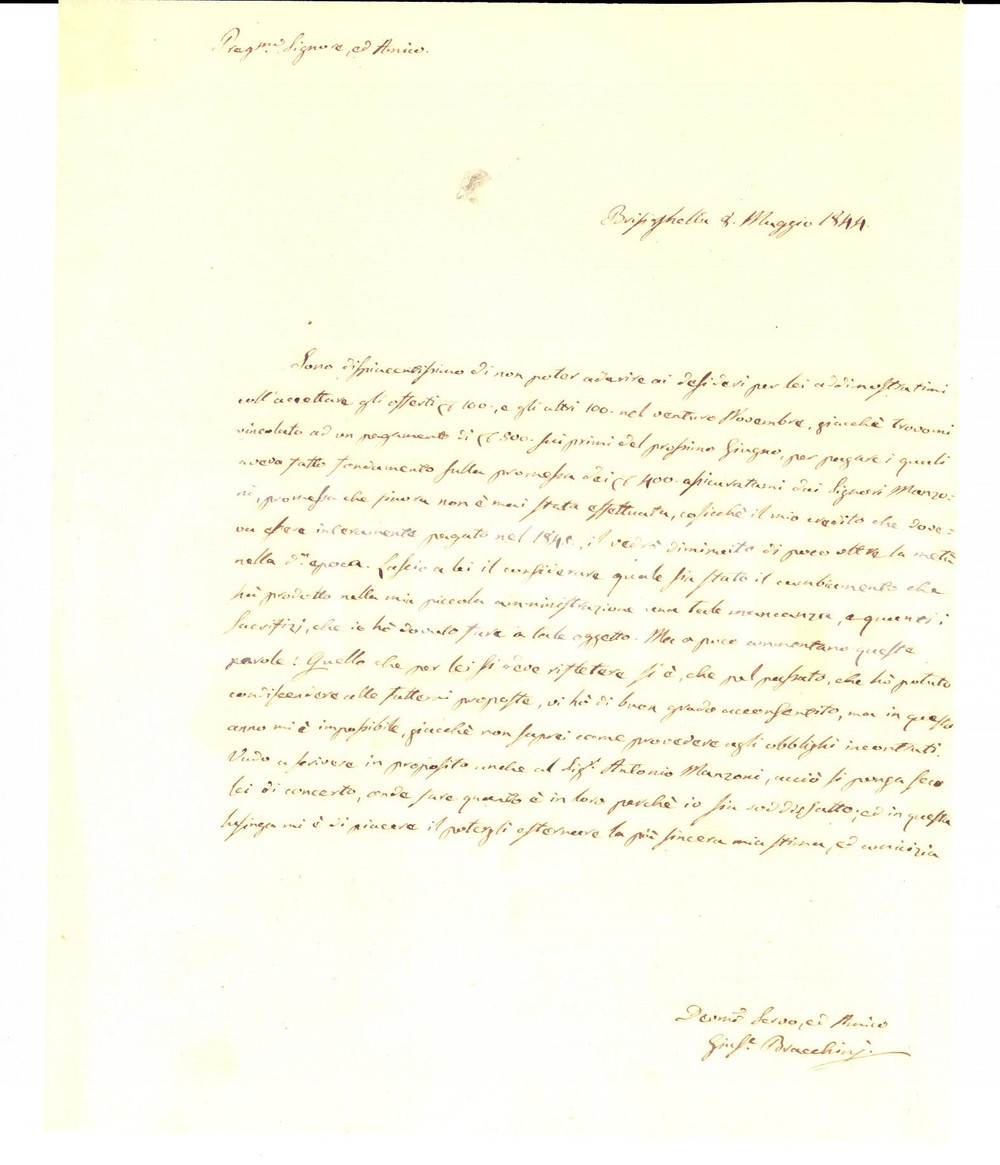 Preg.mo Signore, ed Amico.
Brisighella 8. Maggio 1844.
Sono dispiacentissimo di non poter aderire ai desideri per lei addimostratimi
coll'accettare gli offerti 100., e gli altri 100. nel venturo Novembre, giacchè trovomi
vincolato ad un pagamento di 800. sui primi del prossimo Giugno, per pagare i quali
aveva fatto fondamento sulla promessa dei 400. assicuratami dai Signori Manzo=
ni, promessa che sinora non è mai stata effettuata, cosicchè il mio credito che dove=
va essere interamente pagato nel 1845, il vedrò diminuito di poco oltre la metà
nella d.a epoca. Lascio a lei il considerare quale sia stato il cambiamento che
hà prodotto nella mia piccola amministrazione una tale mancanza, e quanti i
Sacrifizj, che io hò dovuto fare a tale oggetto. Ma a poco ammontano queste
parole! Quello che per lei si deve rifletere si è, che pel passato, che hò potuto
condiscendere alle fattemi proposte, vi hò di buon grado acconsentito, ma in questo
anno mi è impossibile, giacchè non saprei come provedere agli obblighi incontrati.
Vado a scrivere in proposito anche al Sig.r Antonio Manzoni, acciò si ponga seco
lei di concerto, onde fare quanto è in loro perchè io sia soddisfatto; ed in questa
lusinga mi è di piacere il potergli esternare la più sincera mia stima, ed amicizia
Devmo Servo, ed Amico
Gius.e Bracchini.